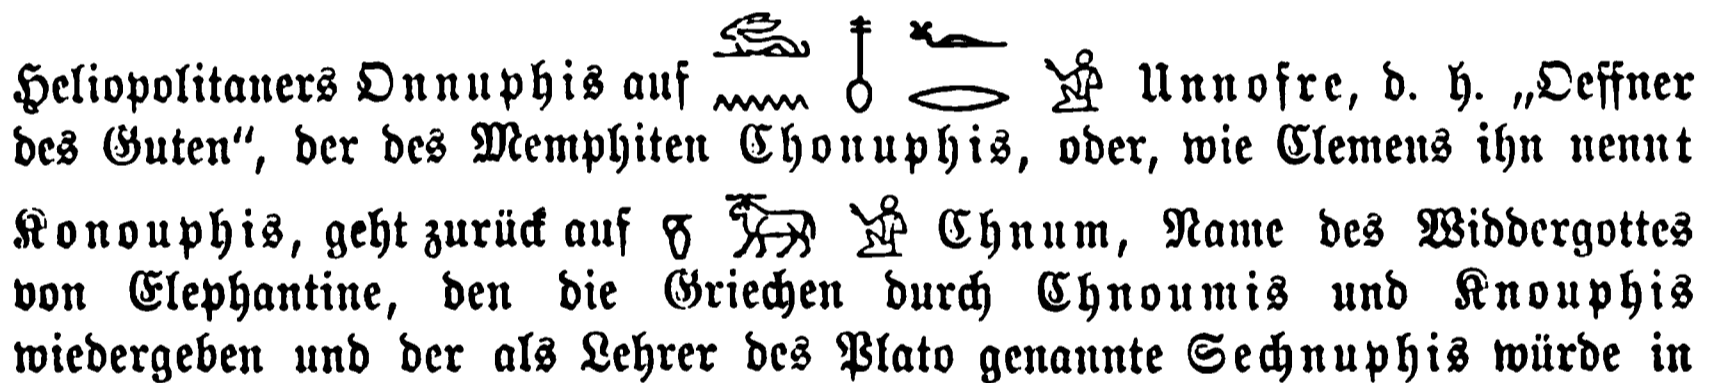 Heliopolitaners Onnuphis auf 𓃹𓈖𓄤𓆑𓂋𓀁 Unnofre, d. h. „Oeffner
des Guten“, der des Memphiten Chonuphis, oder, wie Clemens ihn nennt
Konouphis, geht zurück auf 𓎸𓃝𓀁 Chnum, Name des Widdergottes
von Elephantine, den die Griechen durch Chnoumis und Knouphis
wiedergeben und der als Lehrer des Plato genannte Sechnuphis würde in